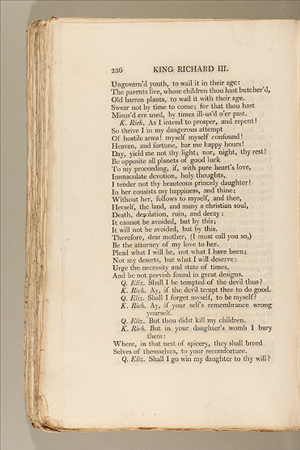 236 KING RICHARD III.
Ungovern'd youth, to wail it in their age:
The parents live, whose children thou hast butcher'd,
Old barren plants, to wail it with their age.
Swear not by time to come; for that thou hast
Misus'd ere used, by times ill-us'd o'er past.
K. Rich. As I intend to prosper, and repent!
So thrive I in my dangerous attempt
Of hostile arms! myself myself confound!
Heaven, and fortune, bar me happy hours!
Day, yield me not thy light; nor, night, thy rest!
Be opposite all planets of good luck
To my proceeding, if, with pure heart's love,
Immaculate devotion, holy thoughts,
I tender not thy beauteous princely daughter!
In her consists my happiness, and thine;
Without her, follows to myself, and thee,
Herself, the land, and many a christian soul,
Death, desolation, ruin, and decay:
It cannot be avoided, but by this;
It will not be avoided, but by this.
Therefore, dear mother, (I must call you so,)
Be the attorney of my love to her.
Plead what I will be, not what I have been;
Not my deserts, but what I will deserve:
Urge the necessity and state of times,
And be not peevish found in great designs.
Q. Eliz. Shall I be tempted of the devil thus?
K. Rich. Ay, if the devil tempt thee to do good.
Q. Eliz. Shall I forget myself, to be myself?
K. Rich. Ay, if your self's remembrance wrong
yourself.
Q. Eliz. But thou didst kill my children.
K. Rich. But in your daughter's womb I bury
them:
Where, in that nest of spicery, they shall breed
Selves of themselves, to your recomforture.
Q. Eliz. Shall I go win my daughter to thy will?